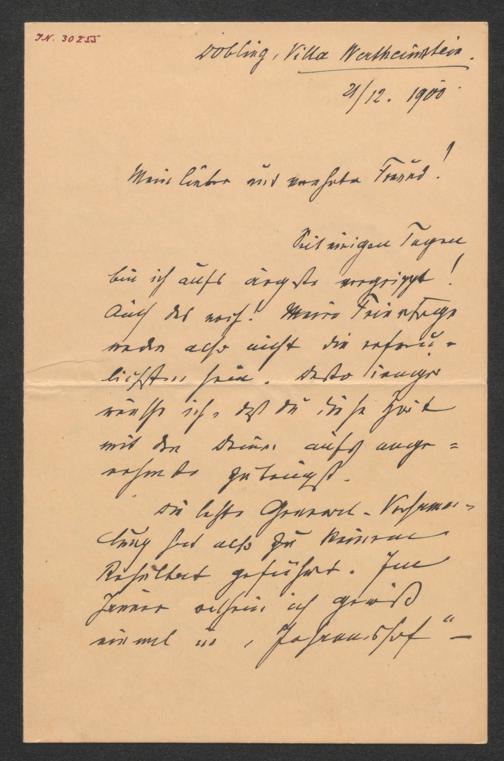 J.N. 30255
Döbling, Villa Wertheimstein.
21/12. 1900.
Mein lieber und verehrter Freund!
Seit einigen Tagen
bin ich aufs ärgste vergrippt!
Auch das noch! Meine Feiertage
werden also nicht die erfreu-
lichsten sein. Desto inniger
wünsche ich, daß du diese Zeit
mit den Deinen aufs ange=
nehmste zubringst.
Die letzte General-Versamm=
lung hat also zu keinem
Resultat geführt. Im
Jänner erscheine ich gewiß
einmal im „Johanneshof" —